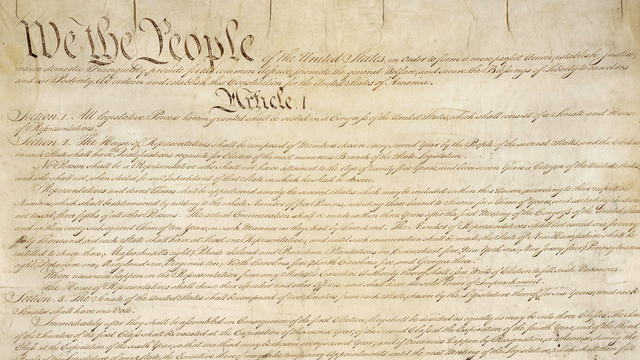 We the People of the United States, in Order to form a more perfect Union, establish Justice,
insure domestic Tranquility, provide for the common defence, promote the general Welfare, and secure the Blessings of Liberty to ourselves
and our Posterity, do ordain and establish this Constitution for the United States of America.
Article. I.
Section. 1. All legislative Powers herein granted shall be vested in a Congress of the United States, which shall consist of a Senate and House
of Representatives.
Section. 2. The House of Representatives shall be composed of Members chosen every second Year by the People of the several States, and the Electors
in each State shall have Qualifications requisite for Electors of the most numerous Branch of the State Legislature.
No Person shall be a Representative who shall not have attained to the Age of twenty five Years, and been seven Years a Citizen of the United States,
and who shall not, when elected, be an Inhabitant of that State in which he shall be chosen.
Representatives and direct Taxes shall be apportioned among the several States which may be included within this Union, according to their respective
Numbers, which shall be determined by adding to the whole Number of free Persons, including those bound to Service for a Term of Years, and excluding Indians
not taxed, three fifths of all other Persons. The actual Enumeration shall be made within three Years after the first Meeting of the Congress of the United States,
and within every subsequent Term of ten Years, in such Manner as they shall by Law direct. The Number of Representatives shall not exceed one for every
thirty Thousand, but each State shall have at Least one Representative; and until such enumeration shall be made, the State of New Hampshire shall be
entitled to chuse three, Massachusetts eight, Rhode Island and Providence Plantations one, Connecticut five, New York six, New Jersey four, Pennsylvania
eight, Delaware one, Maryland six, Virginia ten, North Carolina five, South Carolina five, and Georgia three.
When vacancies happen in the Representation from any State, the Executive Authority thereof shall issue Writs of Election to fill such Vacancies.
The House of Representatives shall chuse their Speaker and other Officers; and shall have the sole Power of Impeachment.
Section. 3. The Senate of the United States shall be composed of two Senators from each State, chosen by the Legislature thereof, for six Years; and each
Senator shall have one Vote.
Immediately after they shall be assembled in Consequence of the first Election, they shall be divided as equally as may be into three Classes. The Seats
of the Senators of the first Class shall be vacated at the Expiration of the second Year, of the second Class at the Expiration of the fourth Year, and of the third
Class at the Expiration of the sixth Year, so that one third may be chosen every second Year; and if Vacancies happen by Resignation, or otherwise, during the